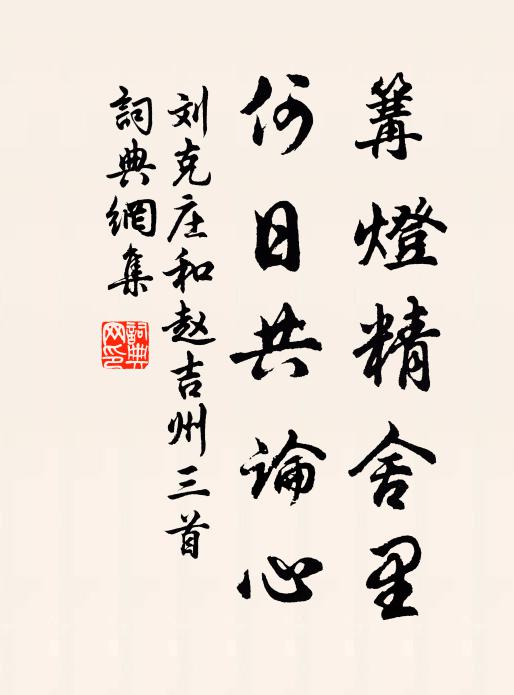 篝燈精舍里
何日共論心
刘克庄和赵吉州三首
詞典網集
詞典網印